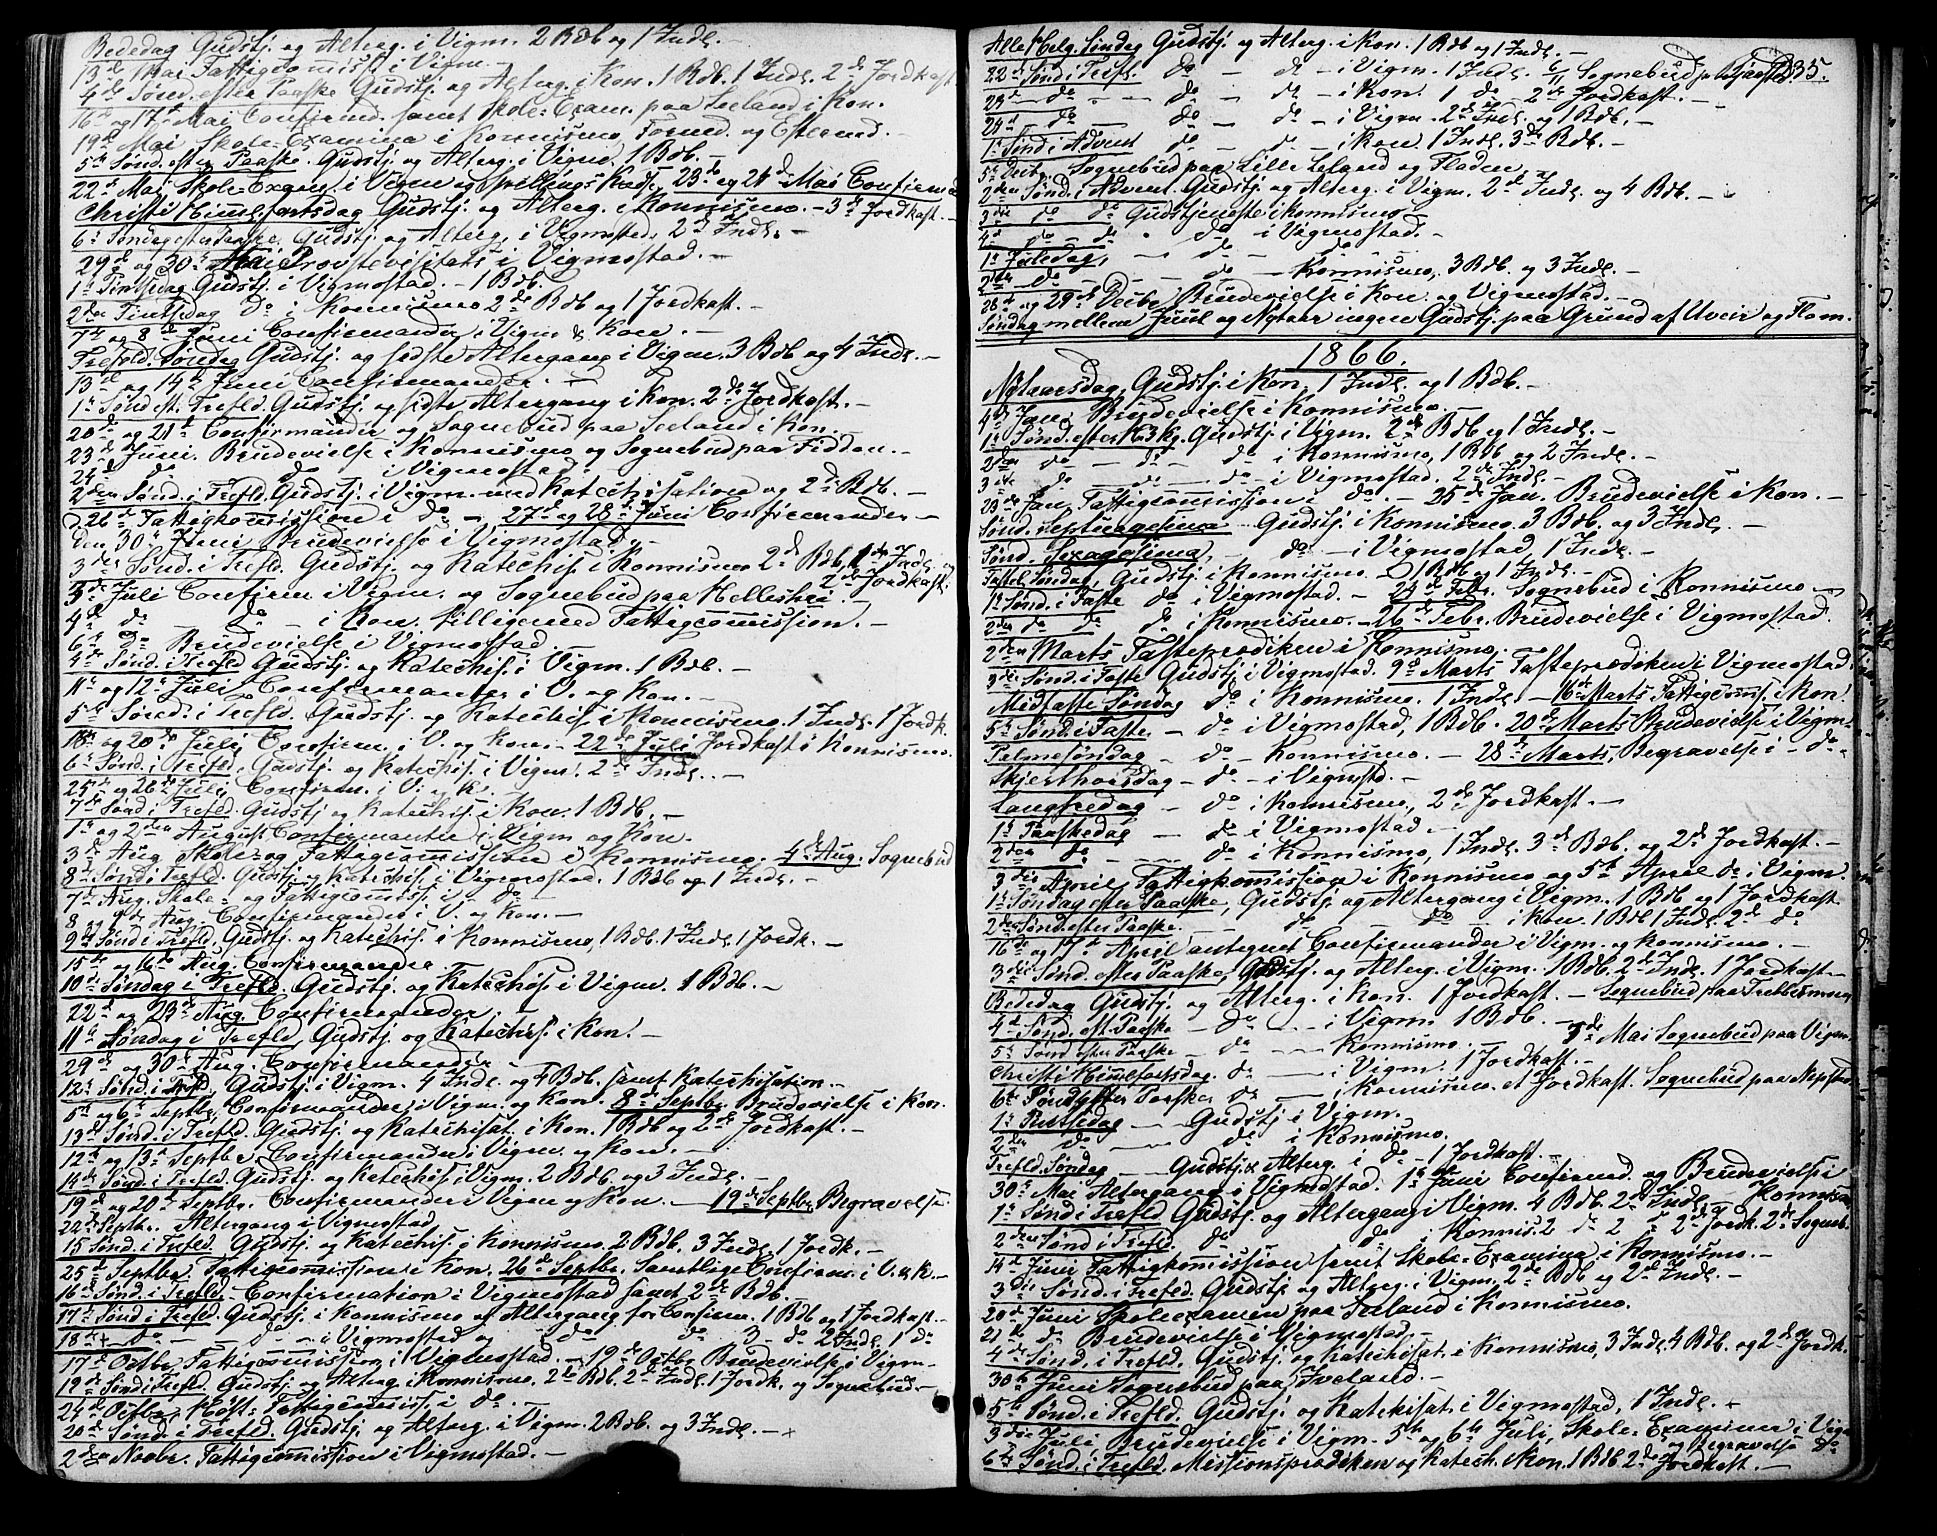 Bededag Gudstj. og Alterg. i Vigm. 2 Bdb og 1 Indl. –
13de Mai Fattigcomiss. i Vigm. –
4de Sønd. efter Paaske Gudstj. og Alterg. i Kon. 1 Bdb. 1 Indl. 2de Jordkast.
16de og 17de Mai Confirmd. samt Skole-Exam. paa Leeland i Kon.
19de Mai Skole-Examina i Konnismo, Formd. og Eftermd. –
5te Sønd. efter Paaske. Gudstj. og Alterg. i Vigm. 1 Bdb. –
22de Mai Skole-Exam. i Vigm og 23de og 24de Mai Confirmd
Christi Himmelfartsdag Gudstj. og Alterg. i Konnismo. – 3de Jordkast. –
6te Søndag efter Paaske, Gudstj. og Alterg. i Vigmsted. 2de Indl. –
29de og 30te Mai Provstevisitats i Vigmostad. –
1ste Pintsedag Gudstj. i Vigmostad. – 1 Bdb. –
2den Pintsedag do i Konnismo 2de Bdb og 1 Jordkast. –
7de og 8de Juni Confirmander i Vigm & Kon. –
Trefold. Søndag Gudstj. og sidste Altergang i Vigm. 3 Bdb og 4 Indl. –
13de og 14de Juni Confirmander. –
1ste Sønd. eft. Trefld. Gudstj. og sidste Altergang i Kon. 2de Jordkast. –
20de og 21de Confirmander og Sognebud paa Leeland i Kon. –
23de Juni. Brudevielse i Konnismo og Sognebud paa Fidden. –
24de do do i Vigmostad –
2den Sønd. i Trefld. Gudstj. i Vigm. med Katechisation og 2de Bdb. –
d. 26de Fattigkomission i do – 27de og 28de Juni Confirmander –
Den 30te Juni Brudevielse i Vigmostad. –
3die Sønd. i Trefld. Gudstj. og Katechis. i Konnismo 2de Bdb, 1 Indl. og
2de Jordkast.
3de Juli Confirm i Vigm. og Sognebud paa Helleskei –
4de do – do – i Kon. tilligemed Fattigcomission. –
6te do Brudevielse i Vigmostad. –
4de Sønd. i Trefld Gudstj. og Katechis. i Vigm. 1 Bdb. –
11te og 12te Juli Confirmanter i V. og Kon. –
5te Sønd. i Trefld. Gudstj. og Katechis. i Konnismo. 1 Indl. 1 Jordk.
og 20de Juli, Confirm. i V. og Kon. – 22de Juli Jordkast i Konnismo.
6te Sønd. i Trefld. Gudstj. og Katechis. i Vigm. 2de Indl. –
25de og 26de Juli Confirm. i V. og K. –
7de Sønd. i Trefld. Gudstj. og Katechis. i Kon. 1 Bdb. –
1ste og 2den August Confirmanter i Vigm og Kon.
3de Aug. Skole- og Fattigcomission i Konnismo. 4de Aug. Sognebud
8de Sønd i Trefld. Gudstj. og Katechis. i Vigmostad. 1 Bdb og 1 Indl. –
7de Aug. Skole- og Fattigcomiss. i do –
8 og 9de Aug. Confirmander i V. og Kon. –
9de Sønd i Trefld. Gudstj. og Katechis. i Konnismo, 1 Bdb. 1 Indl. 1 Jordk. –
15de og 16de Aug. Confirmander
10de Søndag i Trefld. Gudstj. og Katechis. i Vigm. 1 Bdb. –
22de og 23de Aug. Confirmander. –
11te Søndag i Trefld. Gudstj. og Katechis. i Kon. –
29de og 30te Aug. Confirmander –
12te Sønd. i Trefld. Gudstj. i Vigm. 4 Indl. og 4 Bdb. samt Katechisation. –
5te og 6te Septbr. Confirmander i Vigm. og Kon. 8de Septbr. Brudevielse i Kon.
13de Sønd. i Trefld. Gudstj. og Katechisat. i Kon. 1 Bdb og 2de Jordkast. –
12te og 13de Septbr. Confirmander i Vigm og Kon. –
14de Sønd. i Trefld. Gudstj. og Katechis. i Vigm. 2 Bdb. og 3 Indl. –
19de og 20de Septbr. Confirmander i Vigm og Kon. – 19de Septbr. Begravelse –
22de Septbr. Altergang i Vigmostad.
15 Sønd. i Trefld. Gudstj. og Katechis. i Konnismo. 2 Bdb. 3 Indl. 1 Jordk. –
25de Septbr. Fattigcomission i Kon. 26de Septbr. Samtlige Confirm. i V. & K. –
16de Sønd. i Trefld. – Confirmation i Vigmostad samt 2de Bdb. –
17de Sønd i Trefld. Gudstj. i Konnismo og Altergang for Confirm. 1 Bdb og 1 Jordkast. –
18de + do – – do – i Vigmostad og do do 3 – do 2 Indl. 1 do
17de Octbr. Fattigcomission i Vigmostad. – 19de Octbr. Brudevielse i Vigm –
19de Sønd i Trefld. Gudstj. og Alterg. i Konnismo. 2de Bdb. 2de Indl. 1 Jordk. og Sognebud. –
24de Octbr. Høst-Fattigcomiss. i do –
20de Sønd. i Trefld. Gudstj. og Alterg. i Vigm. 2 Bdb. og 3 Indl. – x
2den Novbr. Fattigcomission i Vigmostad. –
Alle Helg. Søndag Gudstj. og Alterg. i Kon. 1 Bdb og 1 Indl. –
22de Sønd i Trefld. do – do – i Vigm. 1 Indl. 6/11 Sognebud paa 235.
23de – do – – do – do – i Kon. 1 do – 2de Jordkast. –
24de – do – – do – do – i Vigm. 2de Indl. og 1 Bdb. –
1ste Sønd i Advent do – do – i Kon. 1 Indl. 3de Bdb. –
5te Decbr. Sognebud paa Lille Leland og Fladen –
2den Sønd. i Advent Gudstj. og Alterg. i Vigm. 2de Indl. og 4 Bdb. –
3die do do Gudstjeneste i Konnismo –
4de – do – do – do i Vigmostad. –
1ste Juledag, – do – do –
2den do – – do – Konnismo, 3 Bdb. og 3 Indl. –
28de og 29de Decbr Brudevielse i Kon. og Vigmostad. –
Søndag mellem Juul og Nytaar ingen Gudstj. paa Grund af Uveir og Flom.
1866.
Nytaarsdag, Gudstj. i Kon, 1 Indl. og 1 Bdb. –
4de Jan. Brudevielse i Konnismo. –
1ste Sønd. efter H3Kg. Gudstj. i Vigm. 2de Bdb og 1 Indl. –
2den do – do – do i Konnismo, 1 Bdb og 2 Indl. –
3die do – do – do i Vigmostad. 2de Indl. –
23de Jan. Fattigcomission i do. – 25de Jan. Brudevielse i Kon. –
Sønd. Septuagesima – Gudstj. i Konnismo. 3 Bdb. og 3 Indl. –
Sønd. Sexagesima, – do – i Vigmostad, 1 Indl. –
Fastel. Søndag, Gudstj. i Konnismo. – 1 Bdb og 1 Indl. –
1ste Sønd. i Faste do i Vigmostad. – 24de Febr. Sognebud i Konnismo –
2den do do do i Konnismo. – 26de Febr. Brudevielse i Vigmostad.
2den Marts Fasteprædiken i Konnismo. –
3die Sønd. i Faste Gudstj. i Vigmostad. 9de Marts Fasteprædiken i Vigmostad.
Midfaste Søndag do i Konnismo. 1 Indl. – 16de Marts Fattigcomiss. i Kon.
5te Sønd. i Faste – do – i Vigmostad, 1 Bdb. 20de Marts Brudevielse i Vigm.
Palmesøndag – do – Konnismo. – 28de Marts, Begravelse i – do –
Skjærthorsdag – do – i Vigmostd. –
Langfredag – do i Konnismo, 2de Jordkast. –
1ste Paaskedag – do i Vigmostad. –
2den do – – do i Konnismo, 1 Indl. 3de Bdb. og 2de Jordkast. –
3die April, Fattigkomission i Konnismo og 5te April do i Vigm.
1ste Søndag efter Paaske, Gudstj. og Altergang i Vigm. 1 Bdb og 1 Jordkast
2den Sønd. efter Paaske. – do – do i Kon. 1 Bdb 1 Indl. 2de do
16de og 17de April antegnet Confirmander i Vigm. og Konnismo. –
3die Sønd. efter Paaske, Gudstj. og Alterg. i Vigm. 1 Bdb. 2de Indl. 1 Jordkast –
Bededag Gudstj. og Alterg. i Kon. 1 Jordkast. – Sognebud paa
4de Sønd. eft. Paaske – do – – i Vigm. 1 Bdb. – 3de Mai Sognebud paa Vigm.
5te Sønd efter Paaske – do – – Konnismo. –
Christi Himelfartsdag do – – i Vigm. 1 Jordkast. –
6te Sønd efter Paaske do – – i Konnismo. et Jordkast. Sognebud paa
1ste Pintsedag – Gudstj i Vigm.
2den do – do i Konnismo.
Trefld. Søndag – Gudstj. & Alterg. i do – 1 Jordkast. –
30te Mai Altergang i Vigmostad. 1ste Juni Confirmd. og Brudevielse i
Konnismo
1ste Sønd i Trefld. Gudstj. og Altergang i Vigm. 4 Bdb. 2de Indl. –
2den Sønd i Trefld. do do i Konnis. 2 do 2 do 2de Jordk. 2de Sogneb.
14de Juni Fattigkomission samt Skole-Examina i Konnismo. –
3die Sønd. i Trefld. Gudstj. og Alterg. i Vigm. 2de Bdb og 2de Indl. –
20de Juni Skoleexamen paa Leeland i Konnismo.
21de do Brudevielse i Vigmostad –
4de Sønd. i Trefld. Gudstj. og Katechisat. i Konnismo, 3 Indl. 4 Bdb. og 2de Jordk.
30te Juni Sognebud paa Iveland. –
5te Sønd. i Trefld. Gudstj. og Katekisat. i Vigmostad, 1 Indl. –
3die Juli, Brudevielse i Vigm. 5te og 6te Juli, Skole-Examina i Vigm
og Begravelse do
6te Sønd. i Trefld. Missionsprædiken og Katech. i Kon. 1 Bdb 2de Jordkast. –